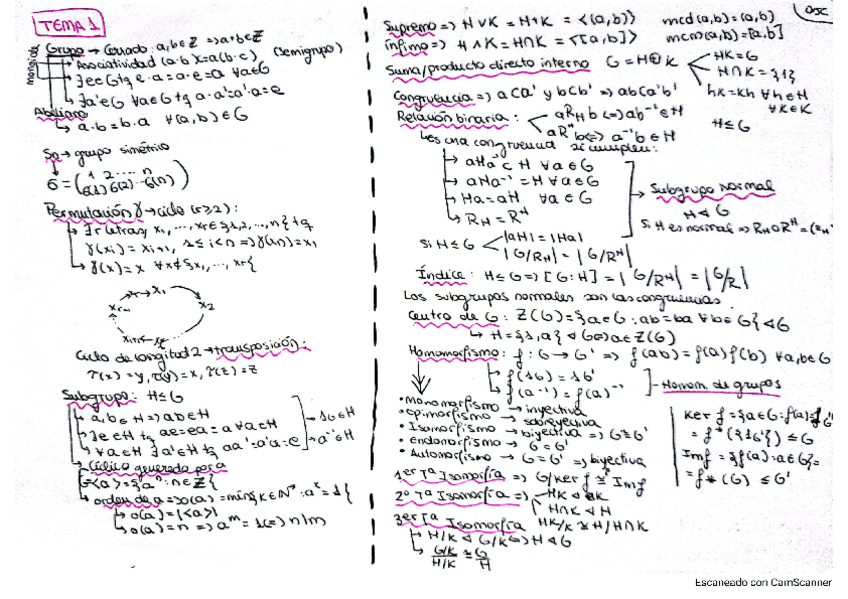 TEMA 1
Grupo → Cerrado: a,b∈Z ⇒ a+b∈Z
monoide
Asociatividad (a·b)·c=a(b·c) (semigrupo)
∃e∈G tq e·a=a·e=a ∀a∈G
∃a'∈G ∀a∈G tq a·a'=a'·a=e
Abeliano
↳ a·b=b·a ∀(a,b)∈G
Sn → grupo simétrico
Permutación γ → ciclo (r≥2):
γ(x)=x ∀x∉{x₁,…,xr}
Ciclo de longitud 2 → transposición:
τ(x)=y, τ(y)=x, τ(z)=z
Subgrupo: H≤G
a,b∈H ⇒ ab∈H
∃e∈H tq ae=ea=a ∀a∈H
∀a∈H ∃a'∈H tq aa'=a'a=e
1G∈H
Cíclico generado por a
G<a>={aⁿ:n∈Z}
orden de a ⇒ o(a)=mín{k∈N*:aᵏ=1}
o(a)=|<a>|
o(a)=n ⇒ aᵐ=1 ⇔ n|m
Supremo ⇒ H∨K=H+K=<(a,b)> mcd(a,b)=(a,b)
Ínfimo ⇒ H∧K=H∩K=<[a,b]> mcm(a,b)=[a,b]
Suma/producto directo interno G=H⊕K
HK=G
H∩K={1}
hk=kh ∀h∈H
∀k∈K
Congruencia ⇒ aCa' y bCb' ⇒ abCa'b'
Relación binaria: aR_Hb ⇔ ab⁻¹∈H
aRᴴb ⇔ a⁻¹b∈H
H≤G
↳ es una congruencia si cumplen:
aHa⁻¹⊂H ∀a∈G
aHa⁻¹=H ∀a∈G
Ha=aH ∀a∈G
R_H=Rᴴ
Subgrupo normal
H◁G
Si H≤G |aH|=|Ha|
|G/R_H|=|G/Rᴴ|
Índice: H≤G ⇒ [G:H]=|G/R_H|=|G/R|
Los subgrupos normales son las congruencias
Centro de G: Z(G)={a∈G:ab=ba ∀b∈G}◁G
↳ H={1,a}◁G ⇔ a∈Z(G)
Homomorfismo: f:G→G' ⇒ f(ab)=f(a)f(b) ∀a,b∈G
f(1G)=1G'
f(a⁻¹)=f(a)⁻¹
Homom. de grupos
• Monomorfismo → inyectiva
• Epimorfismo → sobreyectiva
• Isomorfismo → biyectiva ⇒ G≅G'
• Endomorfismo → G=G'
• Automorfismo → G=G' ⇒ biyectiva
Ker f={a∈G:f(a)=1G'}
=f*({1G'})≤G
Imf={f(a):a∈G}=
=f*(G)≤G'
1er Tª Isomorfía ⇒ G/Ker f≅Imf
2º Tª Isomorfía ⇒
H∩K◁H
HK/K≅H/H∩K
3er Tª Isomorfía
H/K◁G/K ⇔ H◁G
G/K / H/K ≅ G/H
Escaneado con CamScanner